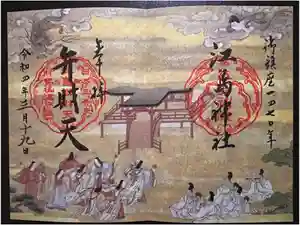 御鎮座一四七〇年
江島神社
弁財天
令和四年三月十九日